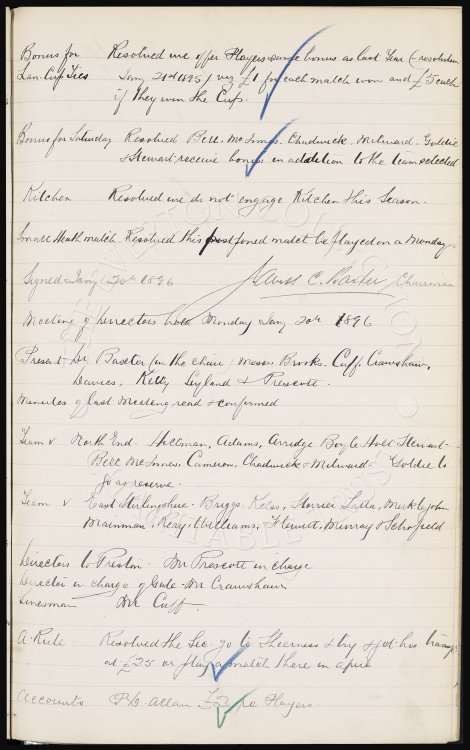 Bonus for Resolved we offer Players same bonus as last Year (resolution
Lan. Cup Ties Jany 21st 1895) viz £1 for each match won and £5 each
if they win the Cup.
Bonus for Saturday Resolved Bell. McInnes. Chadwick. Milward. Goldie
& Stewart receive bonus in addition to the team selected
Kitchen Resolved we do not engage Kitchen this Season.
Small Heath match Resolved this postponed match be played on a Monday
Signed Jany 20th 1896 James C. Baxter Chairman
Meeting of Directors held Monday Jany 20th 1896
Present. Dr Baxter (in the chair) Messrs Brooks. Cuff. Crawshaw,
Davies, Kelly Leyland & Prescott.
Minutes of last Meeting read & confirmed
Team v North End. Hillman, Adams, Arridge Boyle Holt Stewart
Bell McInnes. Cameron, Chadwick & Milward. Goldie to
go as reserve.
Team v East Stirlingshire. Briggs. Kelso, Storrier Latta, Meiklejohn
Mainman. Williams, Flewitt Murray & Schofield
Directors to Preston. Mr Prescott in charge
Director in charge of Gate. Mr Crawshaw
Linesman Mr Cuff.
A. Rule Resolved the Sec. go to Sheerness & try & get his transfer
at £25 or play a match there in
Accounts P.D. Allan £2 re Players.